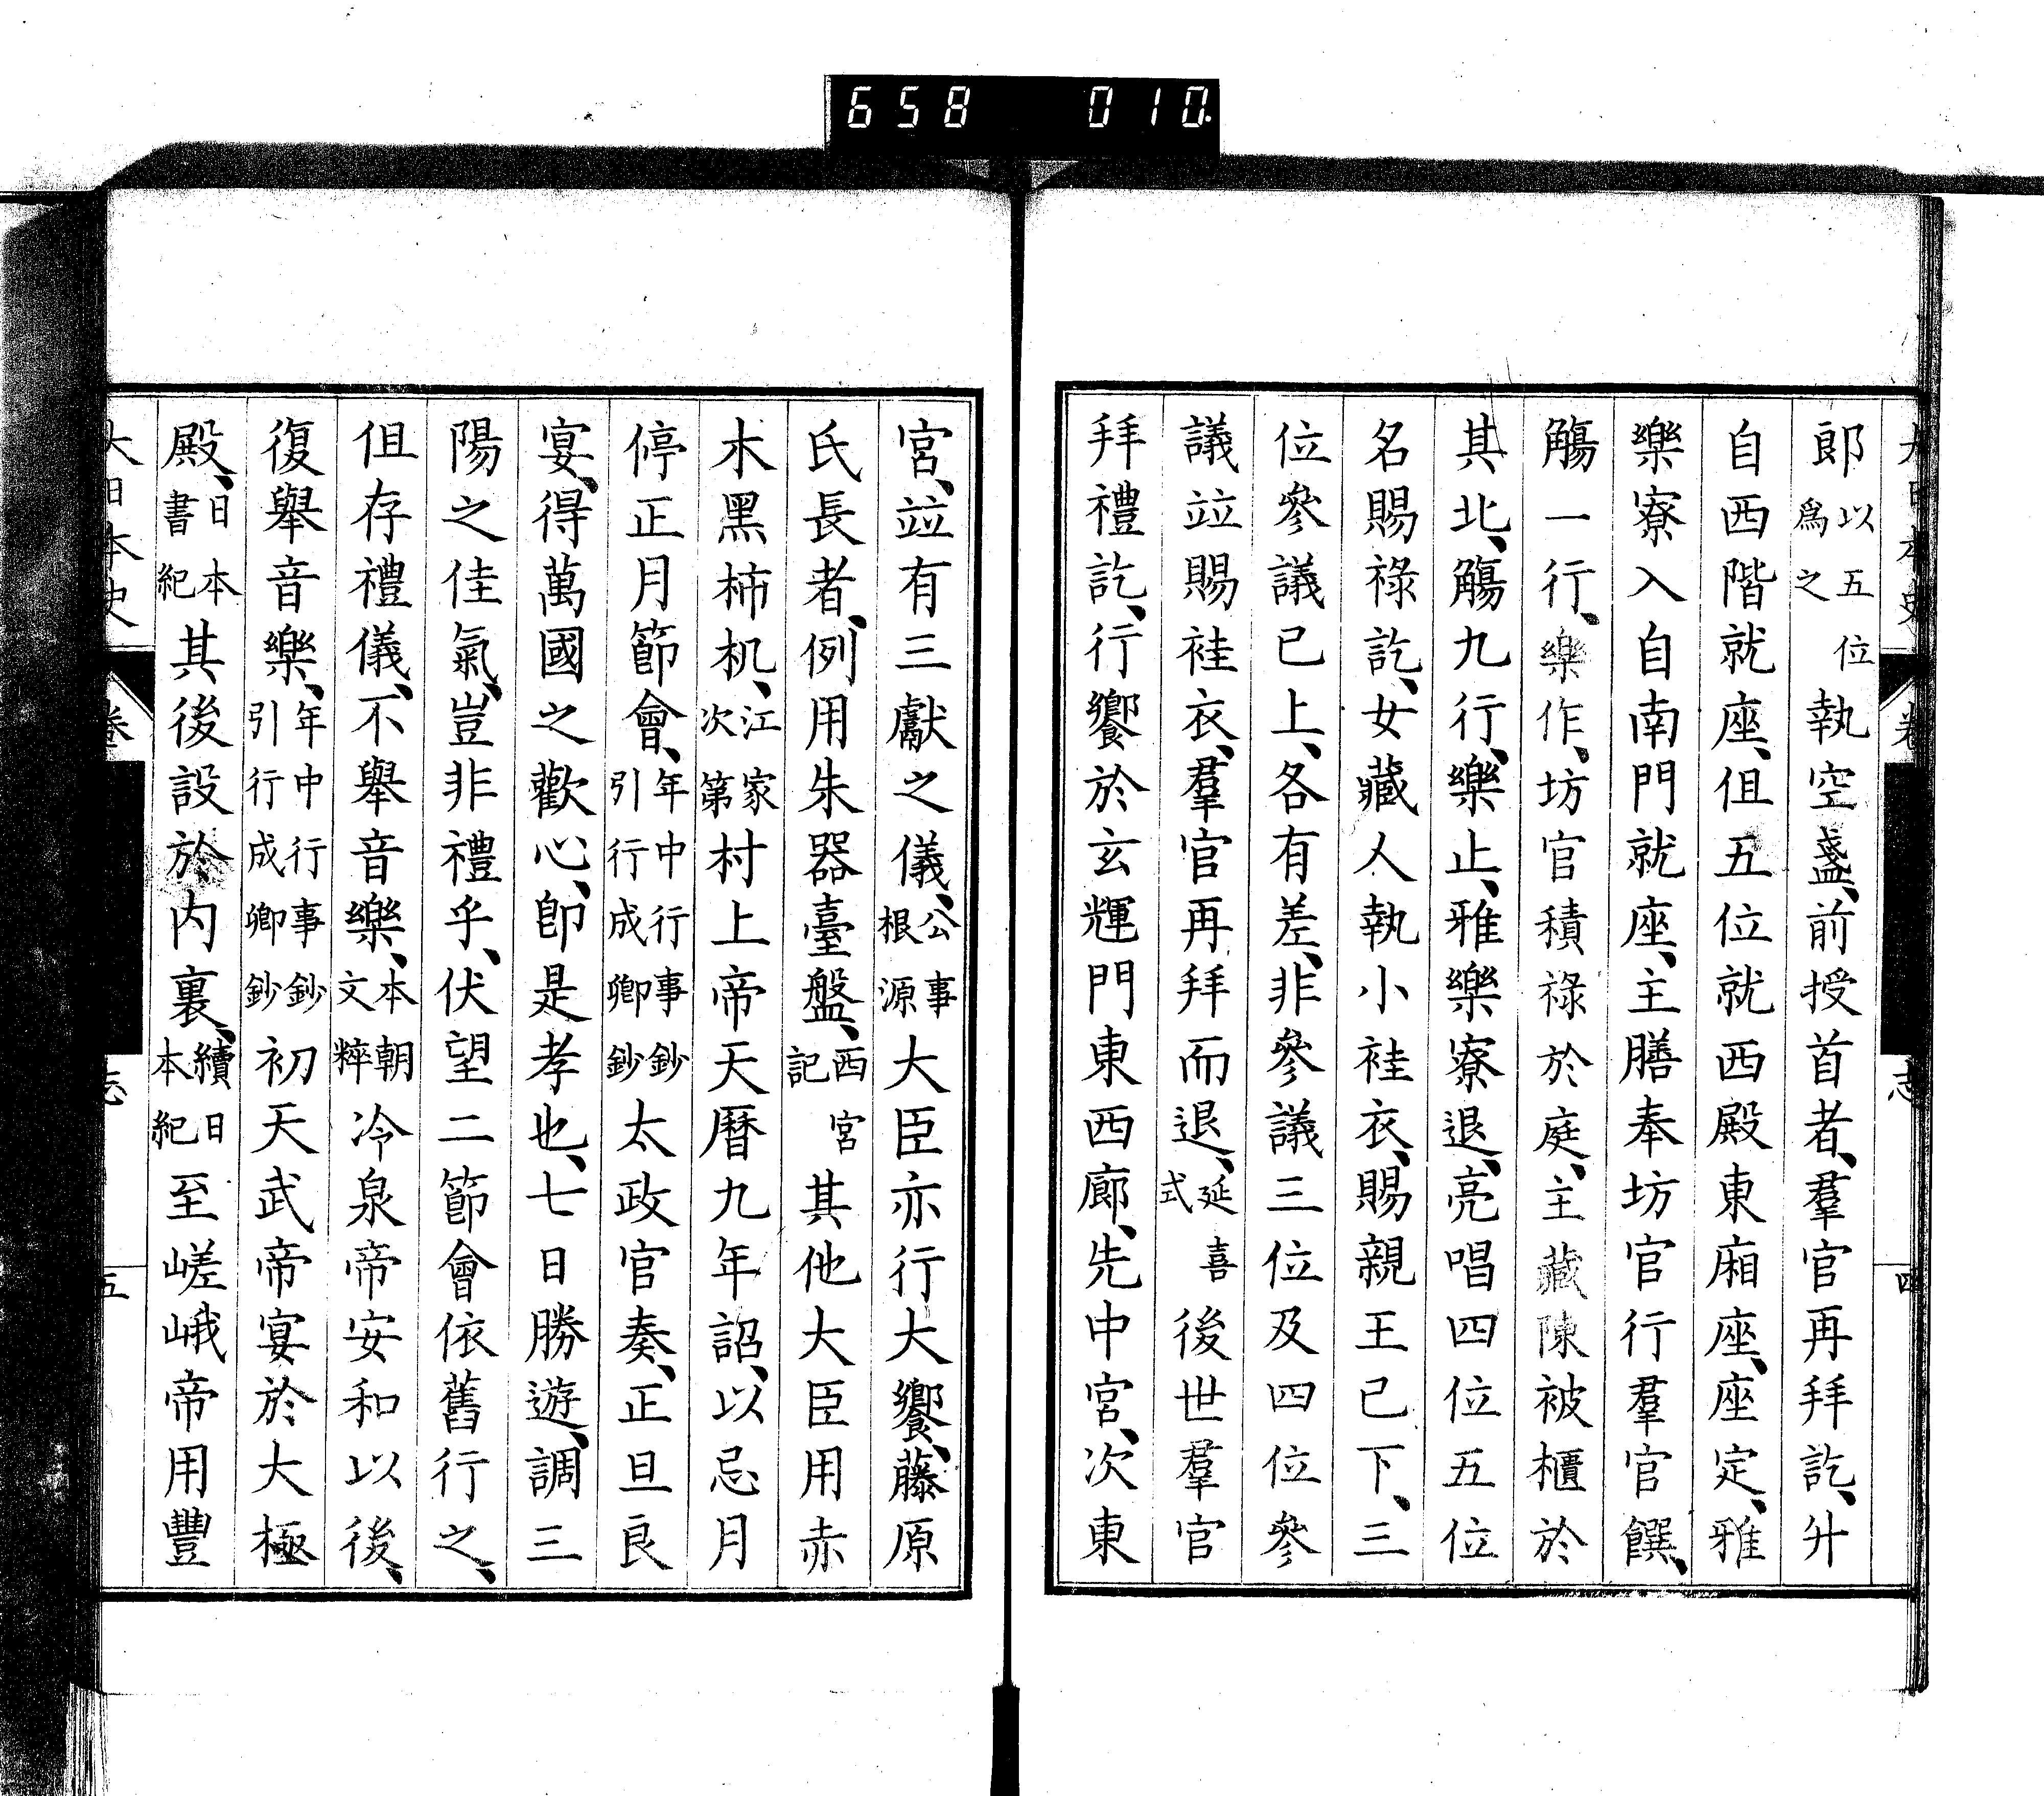 658 010
大日本史 卷 志 四
郎以五位爲之執空盞、前授首者、羣官再拜訖、升
自西階就座、但五位就西殿東廂座、座定、雅
樂寮入自南門就座、主膳奉坊官行羣官饌、
觴一行、樂作、坊官積祿於庭、主藏陳被櫃於
其北、觴九行、樂止、雅樂寮退、亮唱四位五位
名賜祿訖、女藏人執小袿衣、賜親王已下、三
位參議已上、各有差、非參議三位及四位參
議竝賜袿衣、羣官再拜而退、延喜式後世羣官
拜禮訖、行饗於玄輝門東西廊、先中宮、次東
宮、竝有三獻之儀、公事根源大臣亦行大饗、藤原
氏長者、例用朱器臺盤、西宮記其他大臣用赤
木黑柿机、江家次第村上帝天曆九年詔、以忌月
停正月節會、年中行事鈔引行成卿鈔太政官奏、正旦良
宴、得萬國之歡心、卽是孝也、七日勝遊、調三
陽之佳氣、豈非禮乎、伏望二節會依舊行之、
但存禮儀、不舉音樂、本朝文粹冷泉帝安和以後、
復舉音樂、年中行事鈔引行成卿鈔初天武帝宴於大極
殿、日本書紀其後設於内裏、續日本紀至嵯峨帝用豐
大日本史 卷 志 五